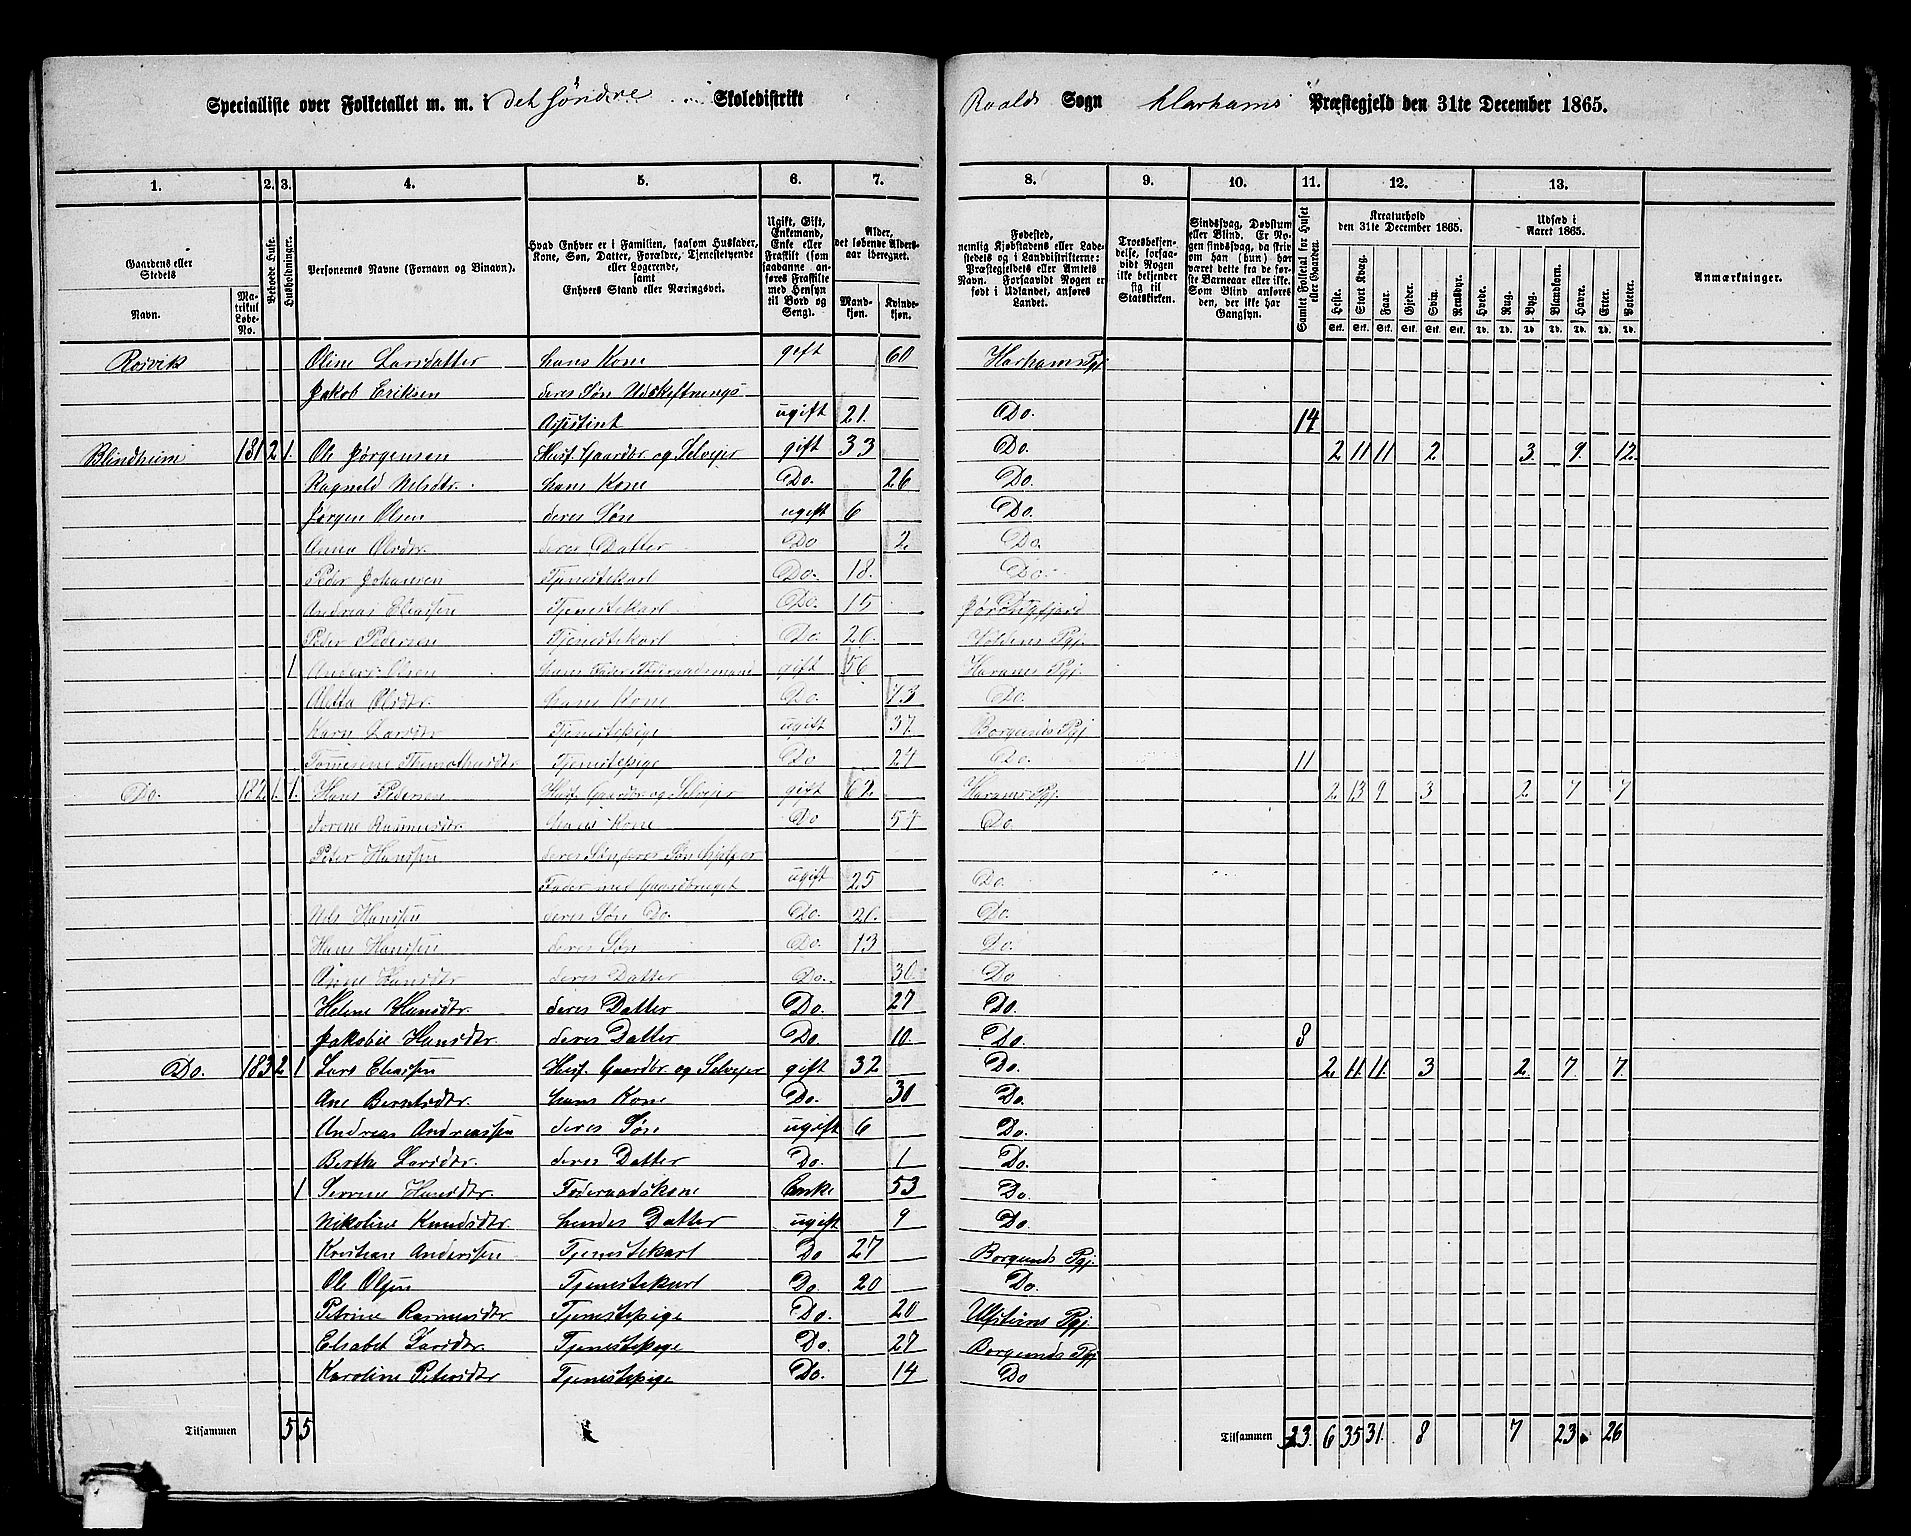 Specialliste over Folketallet m. m. i det søndre Skoledistrikt
Roalds Sogn Harhams Præstegjeld den 31te December 1865.
1. 2. 3. 4. 5. 6. 7. 8. 9. 10. 11. 12. 13.
Gaardens eller Stedets
Navn.
Matrikul Løbe-No.
Beboede Huse.
Husholdninger.
Personernes Navne (Fornavn og Binavn).
Hvad Enhver er i Familien, saasom Husfader, Kone, Søn, Datter, Forældre, Tjenestetyende eller Logerende, samt Enhvers Stand eller Næringsvei.
Ugift, Gift, Enkemand, Enke eller Fraskilt (som saadanne anføres Fraskilte med Hensyn til Bord og Seng).
Alder, det løbende Aldersaar iberegnet.
Mandkjøn. Kvindekjøn.
Fødested, nemlig Kjøbstadens eller Ladestedets og i Landdistrikterne: Præstegjeldets eller Amtets Navn. Forsaavidt Nogen er født i Udlandet, anføres Landet.
Troesbekjendelse, forsaavidt Nogen ikke bekjender sig til Statskirken.
Sindssvag, Døvstum eller Blind. Er Nogen sindssvag, da skrives om han (hun) har været dette fra de første Barneaar eller ikke. Som Blind anføres den, der ikke har Gangsyn.
Samlet Folketal for Huset eller Gaarden.
Kreaturhold den 31te December 1865.
Heste. Stort Kvæg. Faar. Gjeder. Svin. Rensdyr.
Udsæd i Aaret 1865.
Hvede. Rug. Byg. Blandkorn. Havre. Erter. Poteter.
Anmærkninger.
Rosvik Oline Larsdatter hans Kone gift 60 Harhams Pgj.
Jakob Eriksen deres Søn Udskiftnings
Assistent ugift 21. Do. 14
Blindheim 181 2 1. Ole Jørgensen Husf. Gaardbr og Selveier gift 33 Do. 2 11 11 2 3. 9 12.
Ragnild Nilsdtr. hans Kone Do. 26 Do.
Jørgen Olsen deres Søn ugift 6 Do.
Anna Olsdtr. deres Datter Do 2. Do.
Peder Johansen Tjenestekarl Do. 18. Do.
Andreas Eliassen Tjenestekarl Do. 15
Peder Pedersen Tjenestekarl Do. 26. Pgj.
1 Anders Olsen gift 56 Harams Pgj.
Aletta Olsdtr. hans Kone Do. 73 Do.
Karn Larsdtr Tjenestepige ugift 37. Borgunds Pgj.
Tjenestepige Do 24 Do. 11
Do. 182 1. 1. Hans Pedersen Husf. Gaardbr og Selveier gift 62. Harams Pgj. 2 13 9 3 2. 7 7
Sorene Rasmusdtr. hans Kone Do 57 Do.
Peter Hanssen deres Søn, deres Søn hjelper
Fader med Gaardbruget ugift 25 Do.
Nils Hanssen deres Søn Do. Do. 20. Do.
Hans Hanssen deres Søn Do. 13 Do.
Anne Hansdtr deres Datter Do. 30. Do
Helene Hansdtr. deres Datter Do. 27 Do.
Jakobie Hansdtr deres Datter Do. 10. Do. 8
Do. 183 2 1 Lars Eliassen Husf. Gaardbr og Selveier gift 32 Do. 2 11 11. 3 2. 7 7.
Ane Berntsdtr. hans Kone Do. 30 Do.
Andreas Andreassen deres Søn ugift 6 Do.
Berthe Larsdtr. deres Datter Do. 1 Do.
1 Serene Hansdtr. Føderaadskone Enke 53 Do.
Nikoline Knudsdtr. hendes Datter ugift 9 Do.
Kristian Anderssen Tjenestekarl Do 27 Borgunds Pgj.
Ole Olsen Tjenestekarl Do. 20 Do.
Petrine Rasmusdtr. Tjenestepige Do. 20 Ulfstiens Pgj.
Elsabet Larsdtr. Tjenestepige Do. 27 Borgunds Pgj
Karoline Petersdtr Tjenestepige Do. 14 Do
Tilsammen 5 5
Tilsammen 23. 6 35 31. 8 7 23. 26